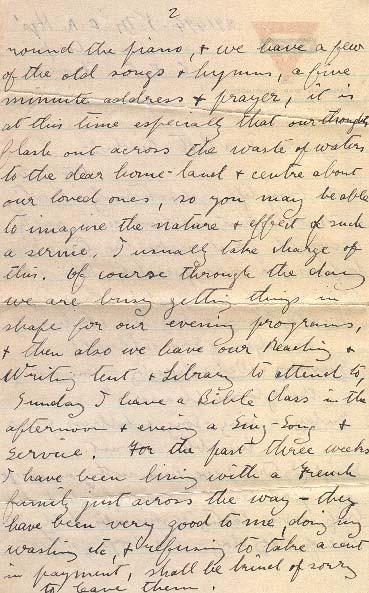 2
round the piano, & we have a few
of the old songs & hymns, a five
minute address & prayer, it is
at this time especially that our thoughts
flash out across the waste of waters
to the dear home-land & centre about
our loved ones, so you may be able
to imagine the nature & effect of such
a service. I usually take charge of
this. Of course through the day
we are busy getting things in
shape for our evening programs,
& then also we have our Reading &
Writing tent & Library to attend to,
Sunday I have a Bible Class in the
afternoon & evening a Sing-Song &
Service. For the past three weeks
I have been living with a French
family just across the way - they
have been very good to me, doing my
washing etc, & refusing to take a cent
in payment, shall be kind of sorry
to leave them.